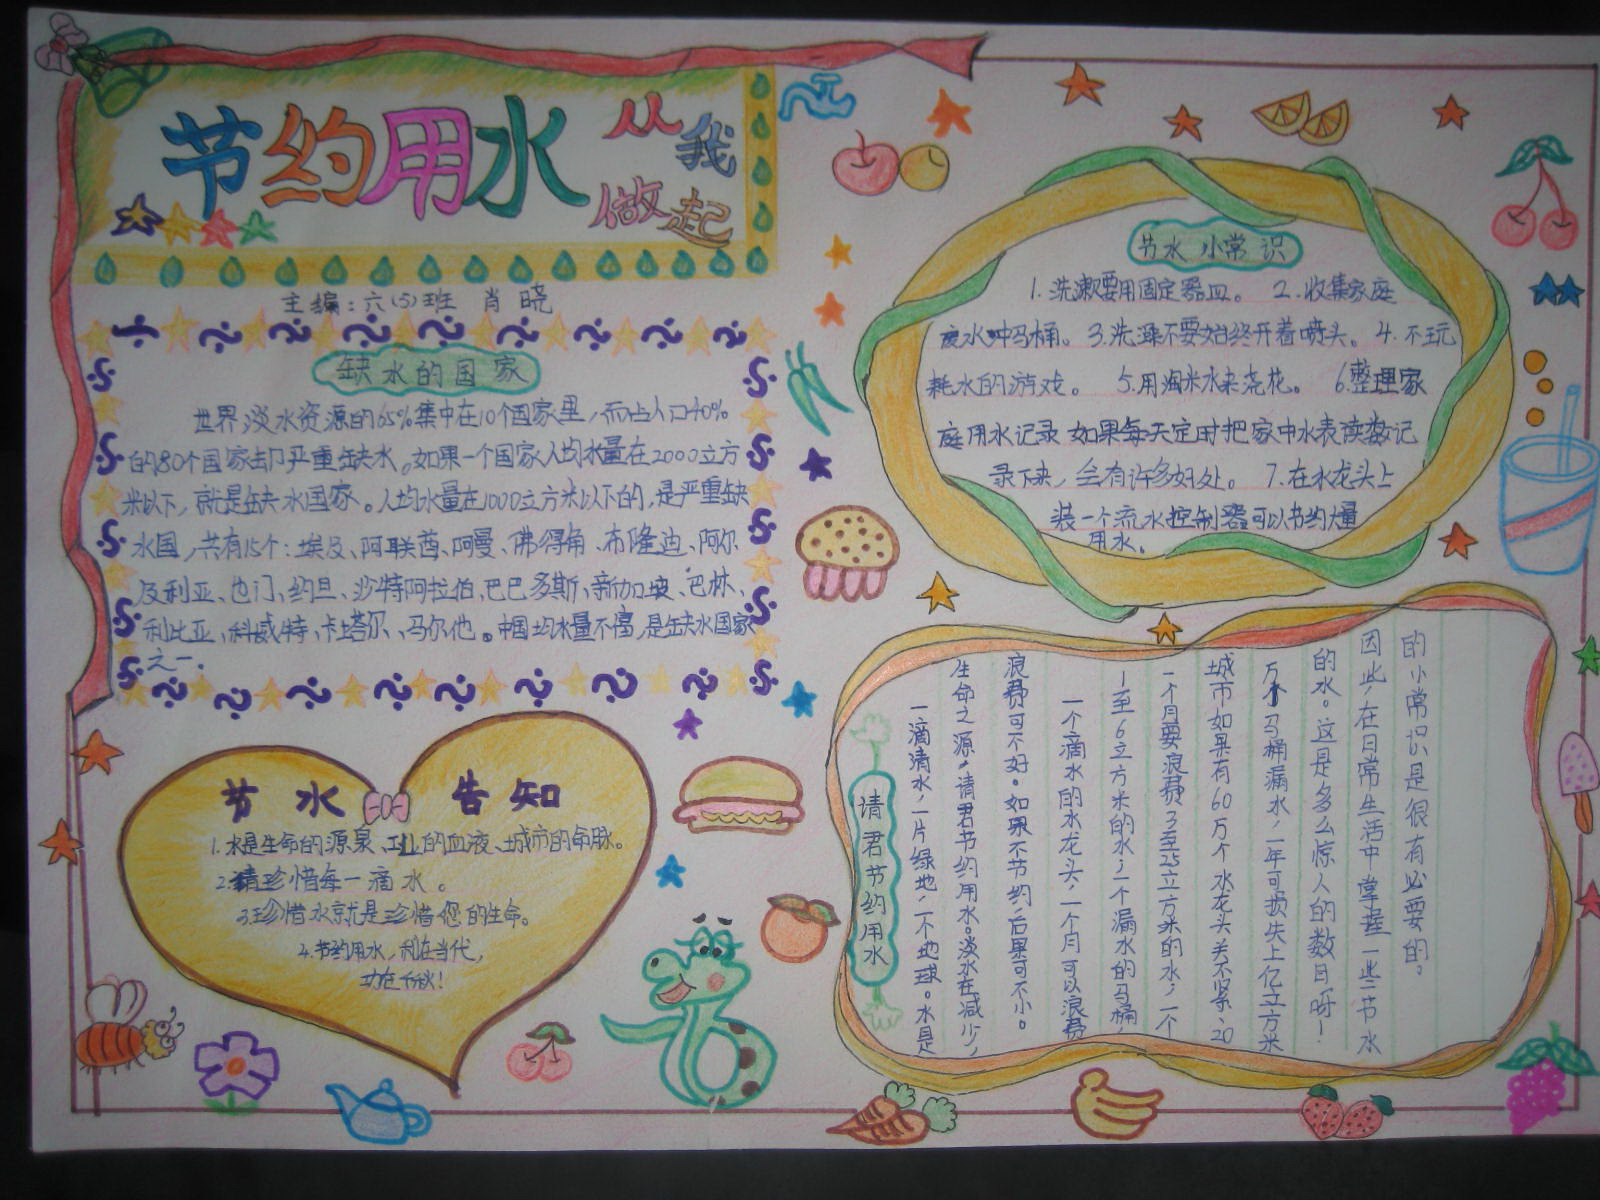 节约用水
从我
做起
主编：六(5)班 肖晓
缺水的国家
世界淡水资源的65%集中在10个国家里，而占人口40%
的80个国家却严重缺水。如果一个国家人均水量在2000立方
米以下，就是缺水国家。人均水量在1000立方米以下的，是严重缺
水国，共有15个：埃及、阿联酋、阿曼、佛得角、布隆迪、阿尔
及利亚、也门、约旦、沙特阿拉伯、巴巴多斯、新加坡、巴林、
利比亚、科威特、卡塔尔、马尔他。中国均水量不富，是缺水国家
之一.
节水小常识
1.洗漱要用固定器皿。 2.收集家庭
废水冲马桶。3.洗澡不要始终开着喷头。4.不玩
耗水的游戏。 5.用淘米水来浇花。 6.整理家
庭用水记录 如果每天定时把家中水表读数记
录下来，会有许多好处。 7.在水龙头上
装一个流水控制器可以节约大量
用水。
节水 告知
1.水是生命的源泉、工业的血液、城市的命脉。
2.请珍惜每一滴水。
3.珍惜水就是珍惜您的生命。
4.节约用水，利在当代，
功在千秋！
请君节约用水
一滴清水，一片绿地，一个地球。水是
生命之源，请君节约用水。淡水在减少，
浪费可不好。如果不节约，后果可不小。
一个滴水的水龙头，一个月可以浪费
1至6立方米的水，一个漏水的马桶，
一个月要浪费3至25立方米的水，一个
城市如果有60万个水龙头关不紧、20
万个马桶漏水，一年可损失上亿立方米
的水。这是多么惊人的数目呀！
因此，在日常生活中掌握一些节水
的小常识是很有必要的。